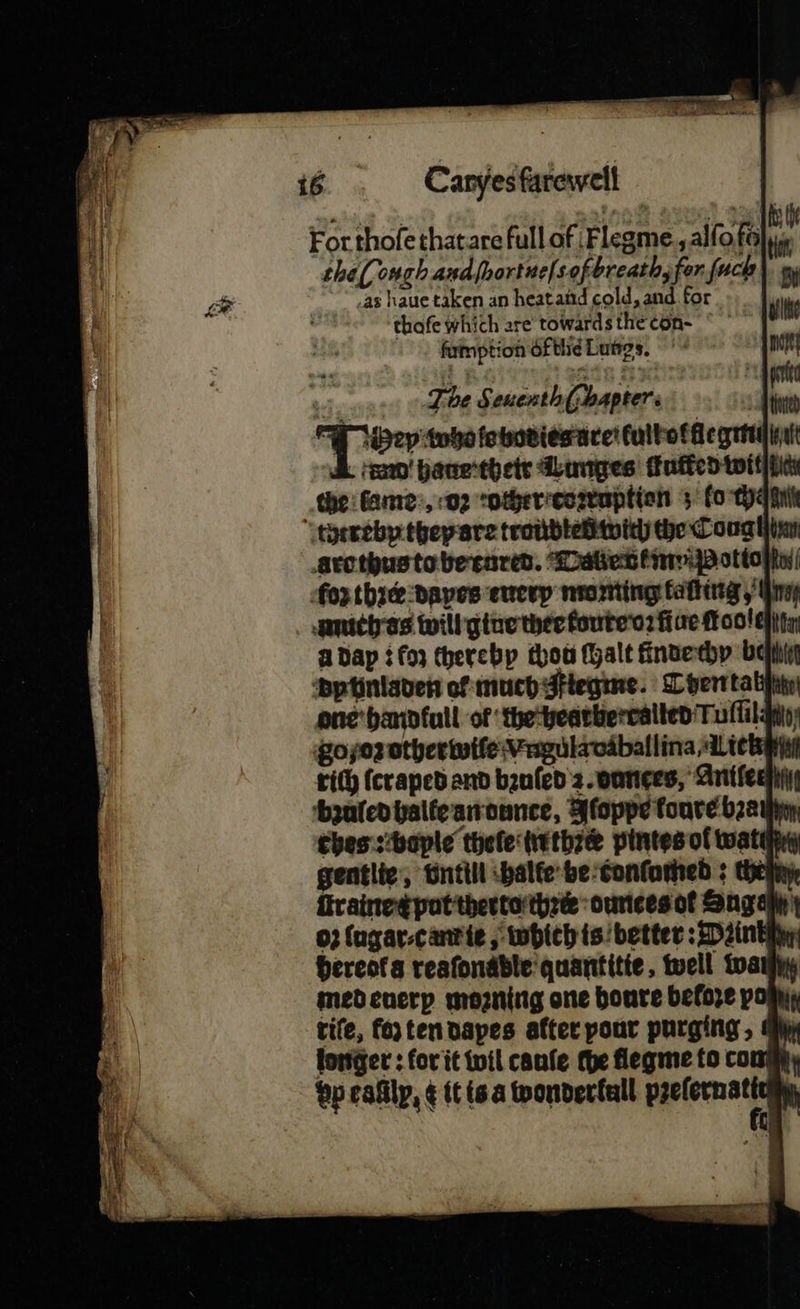 16 Caryes farewell
For those that are full of Flegme, also for
the Cough and shortnesse of breath, for such
as haue taken an heat and cold, and for
those which are towards the con-
sumption of the Lungs.
The Seuenth Chapter.
They whose bodies are full of flegme
and haue their Lunges stuffed with
the same, or other corruption ; so that
thereby they are troubled with the Cough
are thus to be cured. Potio
for thrée dayes euery morning fasting,
much as will giue thee foure or fiue stooles
a day : for thereby thou shalt finde thy
vptinladen of much Flegme. Then take
one handfull of the hearbe called Tussila
go, or otherwise Vngula caballina, Lick
rish scraped and brused 2. ounces, Anisee
brused halfe an ounce, Isoppe foure bran
ches : boyle these in thrée pintes of wat
gentlie, vntill halfe be consumed : the
strained put therto thrée ounces of Suge
or sugar-cantie, which is better : Drink
hereof a reasonable quantitie, well war
med euery morning one houre before yo
rise, for ten dayes after your purging,
longer : for it wil cause the flegme to com
vp easily, & it is a wonderfull preseruati